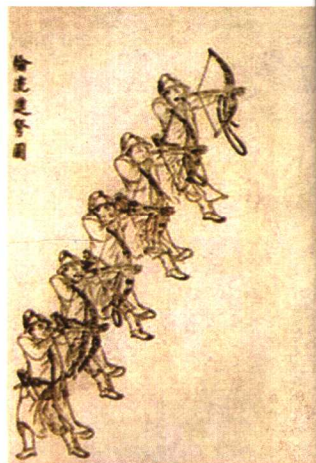 輪流進弩圖